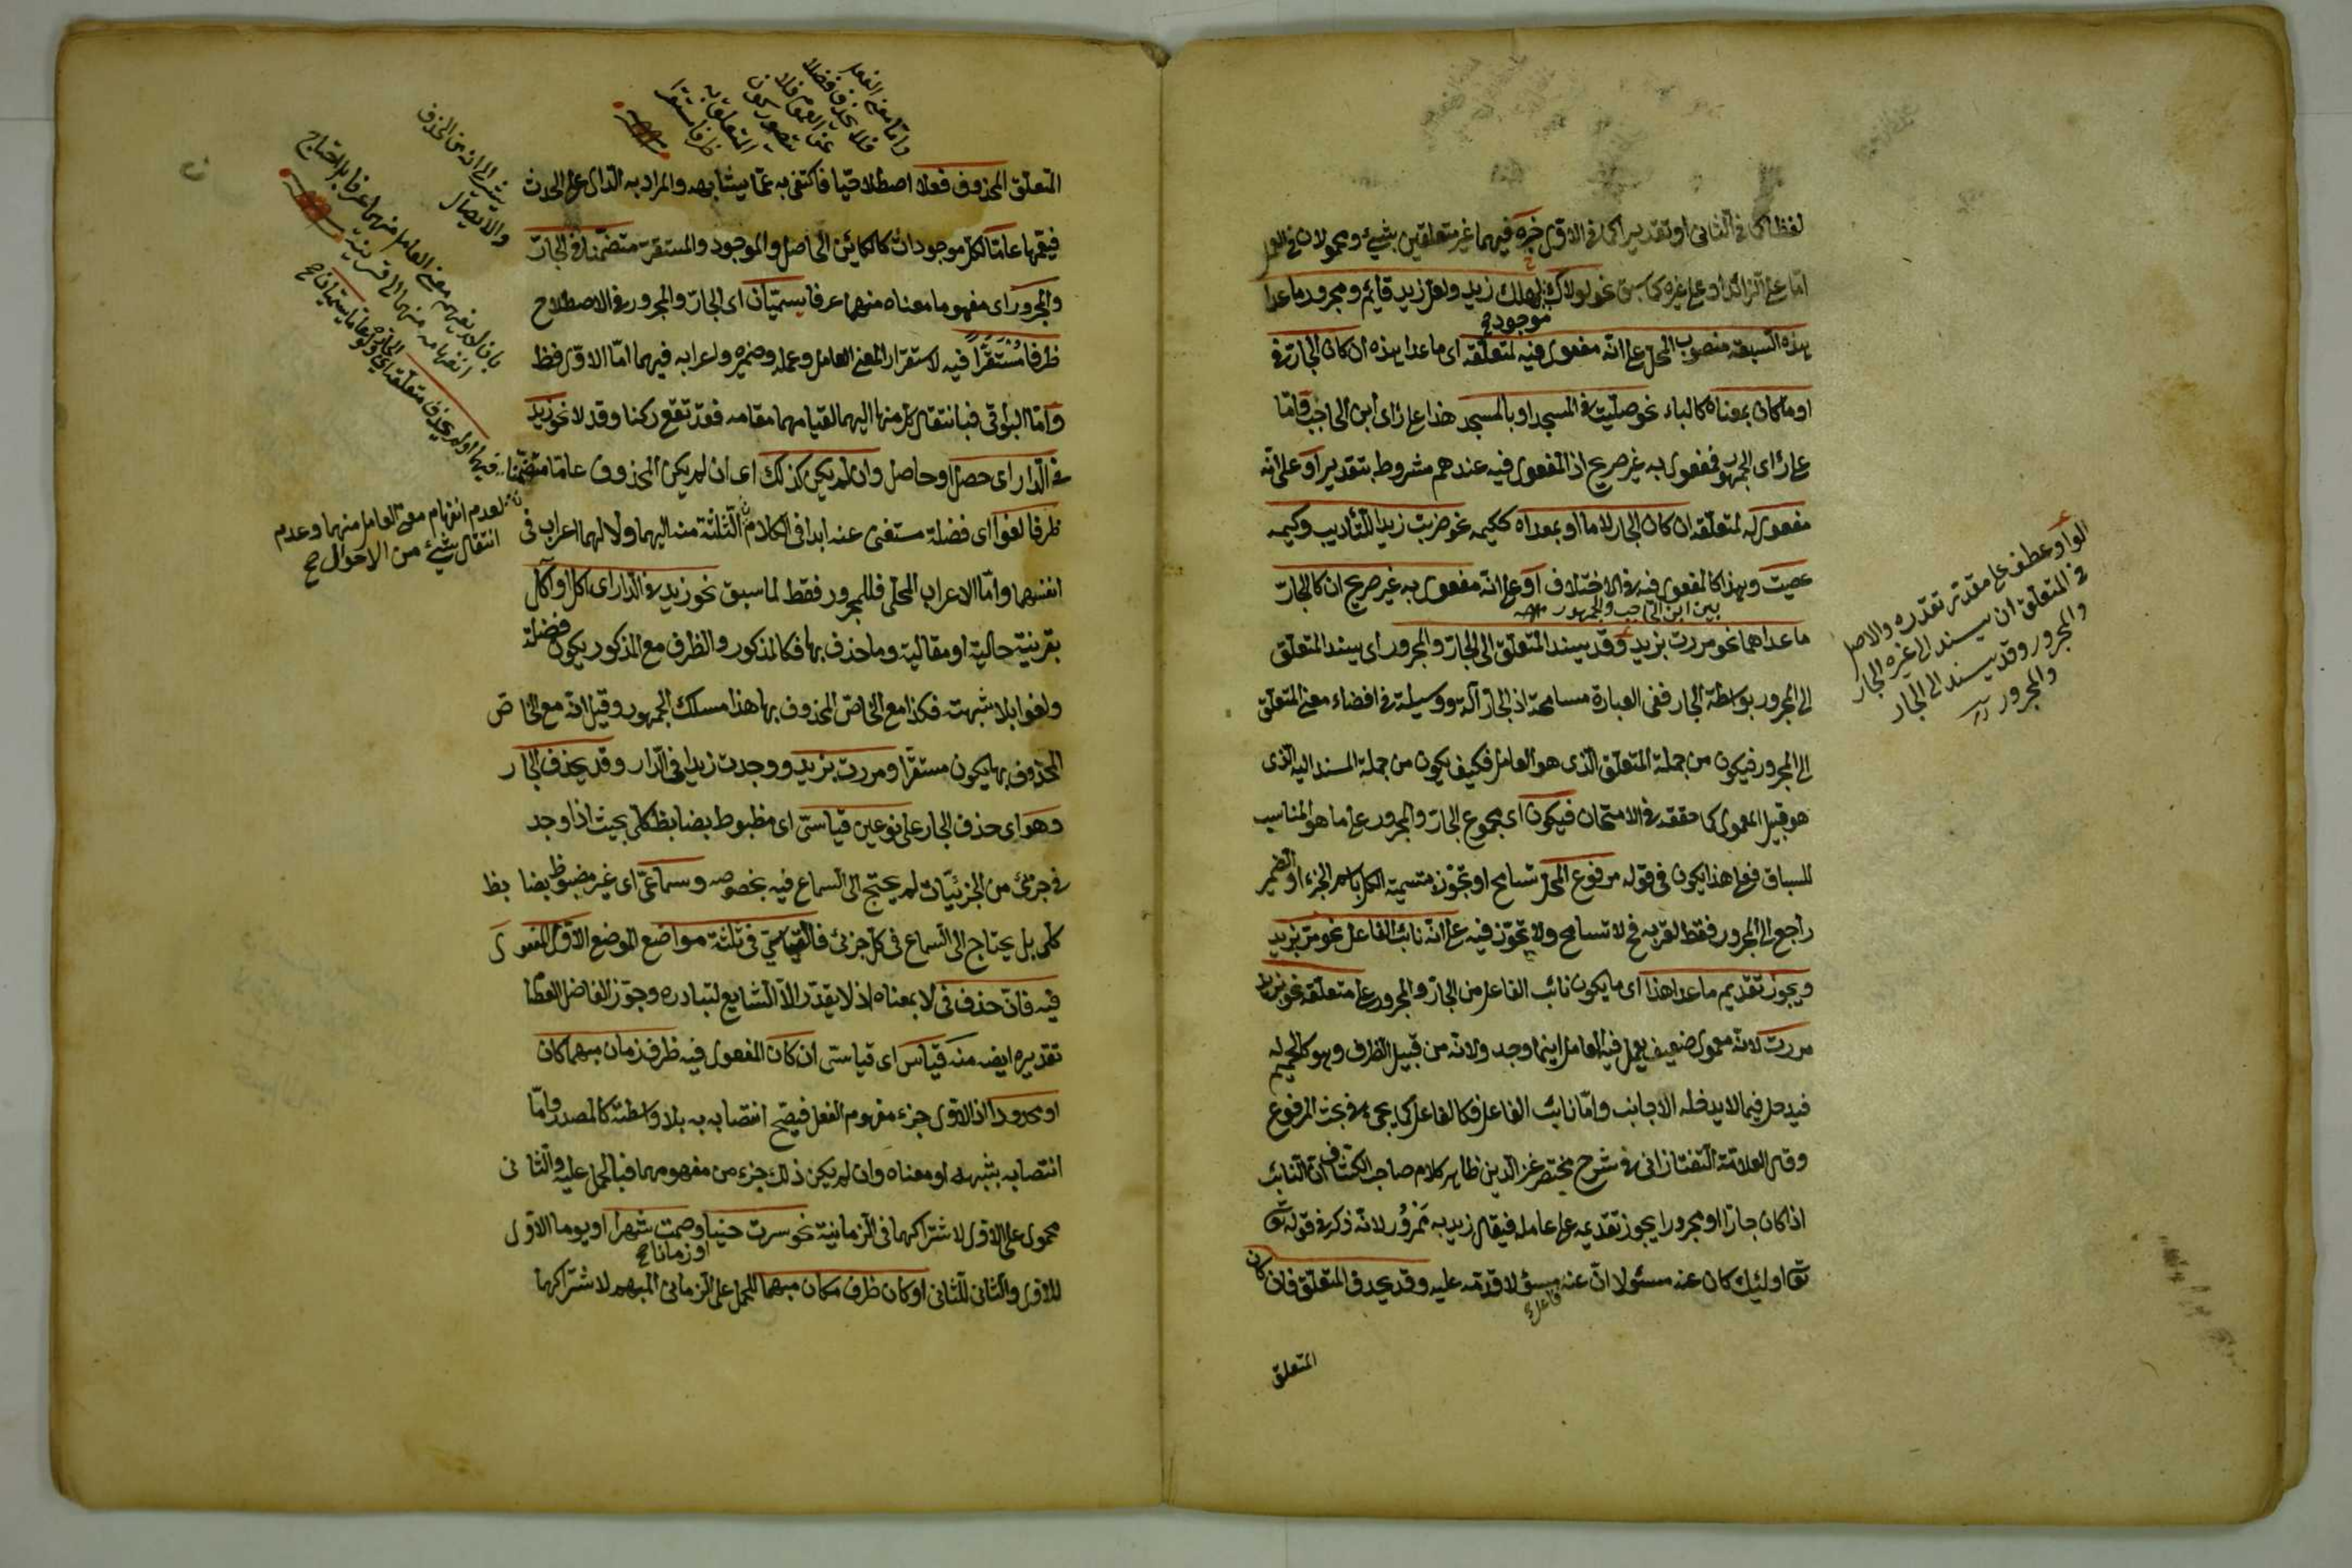 لفظا كما فى الثانى او تقديرا كما فى الاول خبره فيهما غير متعلقين بشئ ومجرور لان فى العمل
اما على الزائد او على غيره كما سبق نحو لولاك لهلك زيد ولعل زيد قايم ومجرور ما عدا
موجود صح
هذه السبعة منصوب المحل على انه مفعول فيه لمتعلقه اى ما عدا هذه ان كان الجار فى
او ما كان بمعناه كالباء نحو صليت فى المسجد او بالمسجد هذا على راى ابن الحاجب واما
على راى الجمهور فمفعول به غير صريح اذ المفعول فيه عندهم مشروط بتقدير او على انه
مفعول له لمتعلقه ان كان الجار لاما او بمعناه ككيمه نحو ضربت زيدا للتأديب وكيمه
عصيت وهذا كالمفعول فيه فى الاختلاف او على انه مفعول به غير صريح ان كا الجار
بين ابن الحاجب والجمهور
ما عداهما نحو مررت بزيد وقد يسند المتعلق الى الجار والمجرور اى يسند المتعلق
الى المجرور بواسطة الجار ففى العبارة مسامحة اذ الجار آلة ووسيلة فى افضاء معنى المتعلق
الى المجرور فيكون من جملة المتعلق الذى هو العامل فكيف يكون من جملة المسند اليه الذى
هو قبيل المعمول كما حققه فى الامتحان فيكون اى مجموع الجار والمجرور على ما هو المناسب
للسباق فعلى هذا يكون فى قوله مرفوع المحل تسامح او تجوز متسمية الكل باسم الجزء او الضمير
راجع الى المجرور فقط لقربه فح لا تسامح ولا تجوز فيه على انه نائب الفاعل نحو مر بزيد
ويجوز تقديم ما عدا هذا اى ما يكون نائب الفاعل من الجار والمجرور على متعلقه نحو بزيد
مررت لانه معمول ضعيف يعمل فيه العامل اينما وجد ولانه من قبيل الظرف وهو كالحميم له
فيدخل فيما لا يدخله الاجانب واما نائب الفاعل فكالفاعل كما يجئ فى بحث المرفوع
وقال العلامة التفتازانى فى شرح مختصر عز الدين ظاهر كلام صاحب الكشاف ان النائب
اذا كان جارا او مجرورا يجوز تقديمه على عامله فيقال زيد به ممرور لانه ذكر فى قوله تعا
تعا اولئك كان عنه مسئولا ان عنه مسؤلا قدمه عليه وقد يحذف المتعلق فان كان
فاعل
المتعلق
الواو عطف على مقدر تقديره والاصل
فى المتعلق ان يسند الى غير الجار
والمجرور وقد يسند الى الجار
والمجرور
المتعلق المحذوف فعلا اصطلاحيا فاكتفى به عما يشابهه والمراد به الدال على الحدث
فيعمها عاما لكل موجود اى كالكائن الحاصل والموجود والمستقر متضمنا فى الجار
والمجرور اى مفهوما معناه منهما عرفا يسميان اى الجار والمجرور فى الاصطلاح
ظرفا مستقرا فيه لاستقرار المعنى العامل وعمله وضميره واعرابه فيهما اما الاول فظ
واما البواقى فبانتقال كل منها اليهما لقيامهما مقامه فقد تقع ركنا وقد لا نحو زيد
فى الدار اى حصل او حاصل وان لم يكن كذلك اى ان لم يكن المحذوف عاما متضمنا
ظرفا لغوا اى فضلة مستغنى عنه ابدا فى الكلام الثلثة منه اليهما ولا لهما اعراب فى
انفسهما واما الاعراب المحلى فللمجرور فقط لما سبق نحو زيد فى الدار اى اكل او آكل
بقرنية حالية او مقالية وما حذف بها فكالمذكور والظرف مع المذكور يكون فضلة
ولغوا بلا شبهة فكذا مع الخاص المحذوف بها هذا مسلك الجمهور وقيل انه مع الخاص
المحذوف بها يكون مستقرا ومررت بزيد ووجدت زيدا فى الدار وقد يحذف الجار
وهو اى حذف الجار على نوعين قياسى اى مظبوط بضابط كلى بحيث اذا وجد
فى جزئ من الجزئيات لم يحتج الى السماع فيه بخصوصه وسماعى اى غير مضبوط بضا بط
كلى بل يحتاج الى السماع فى كل جزئ فالقياسى فى ثلثة مواضع الموضع الاول المفعول
فيه فان حذف فى لا بمعناه اذ لا يقدر الا الشايع لتبادره وجوز الفاضل العصا
تقديره ايضه منه قياس اى قياسى ان كان المفعول فيه ظرف زمان مبهما كان
او محدودا اذ الاول جزء مفهوم الفعل فيصح انتصابه به بلا واسطة كالمصدر واما
انتصابه بشبهه او معناه وان لم يكن ذلك جزء من مفهومهما فبالحمل عليه والثانى
محمول على الاول لاشتراكهما فى الزمانية نحو سرت حينا وصمت شهرا او يوما الاول
او زمانا صح
للاول والثانى للثانى او كان ظرف مكان مبهما للحمل على الزمانى المبهم لاشتراكهما
واما معنى الفعل
فلا يحذف فضلا
عن العموم فلا
يتصور كون
المتعلق به
ظرفا مستقرا
يشير الى انه من الحذف
والايصال
بان لا يفهم معنى العامل منهما عرفا بل احتاج
انفهامه منهما الى قرينة
لعدم انفهام معنى العامل منهما وعدم
انتقال شئ من الاحوال صح